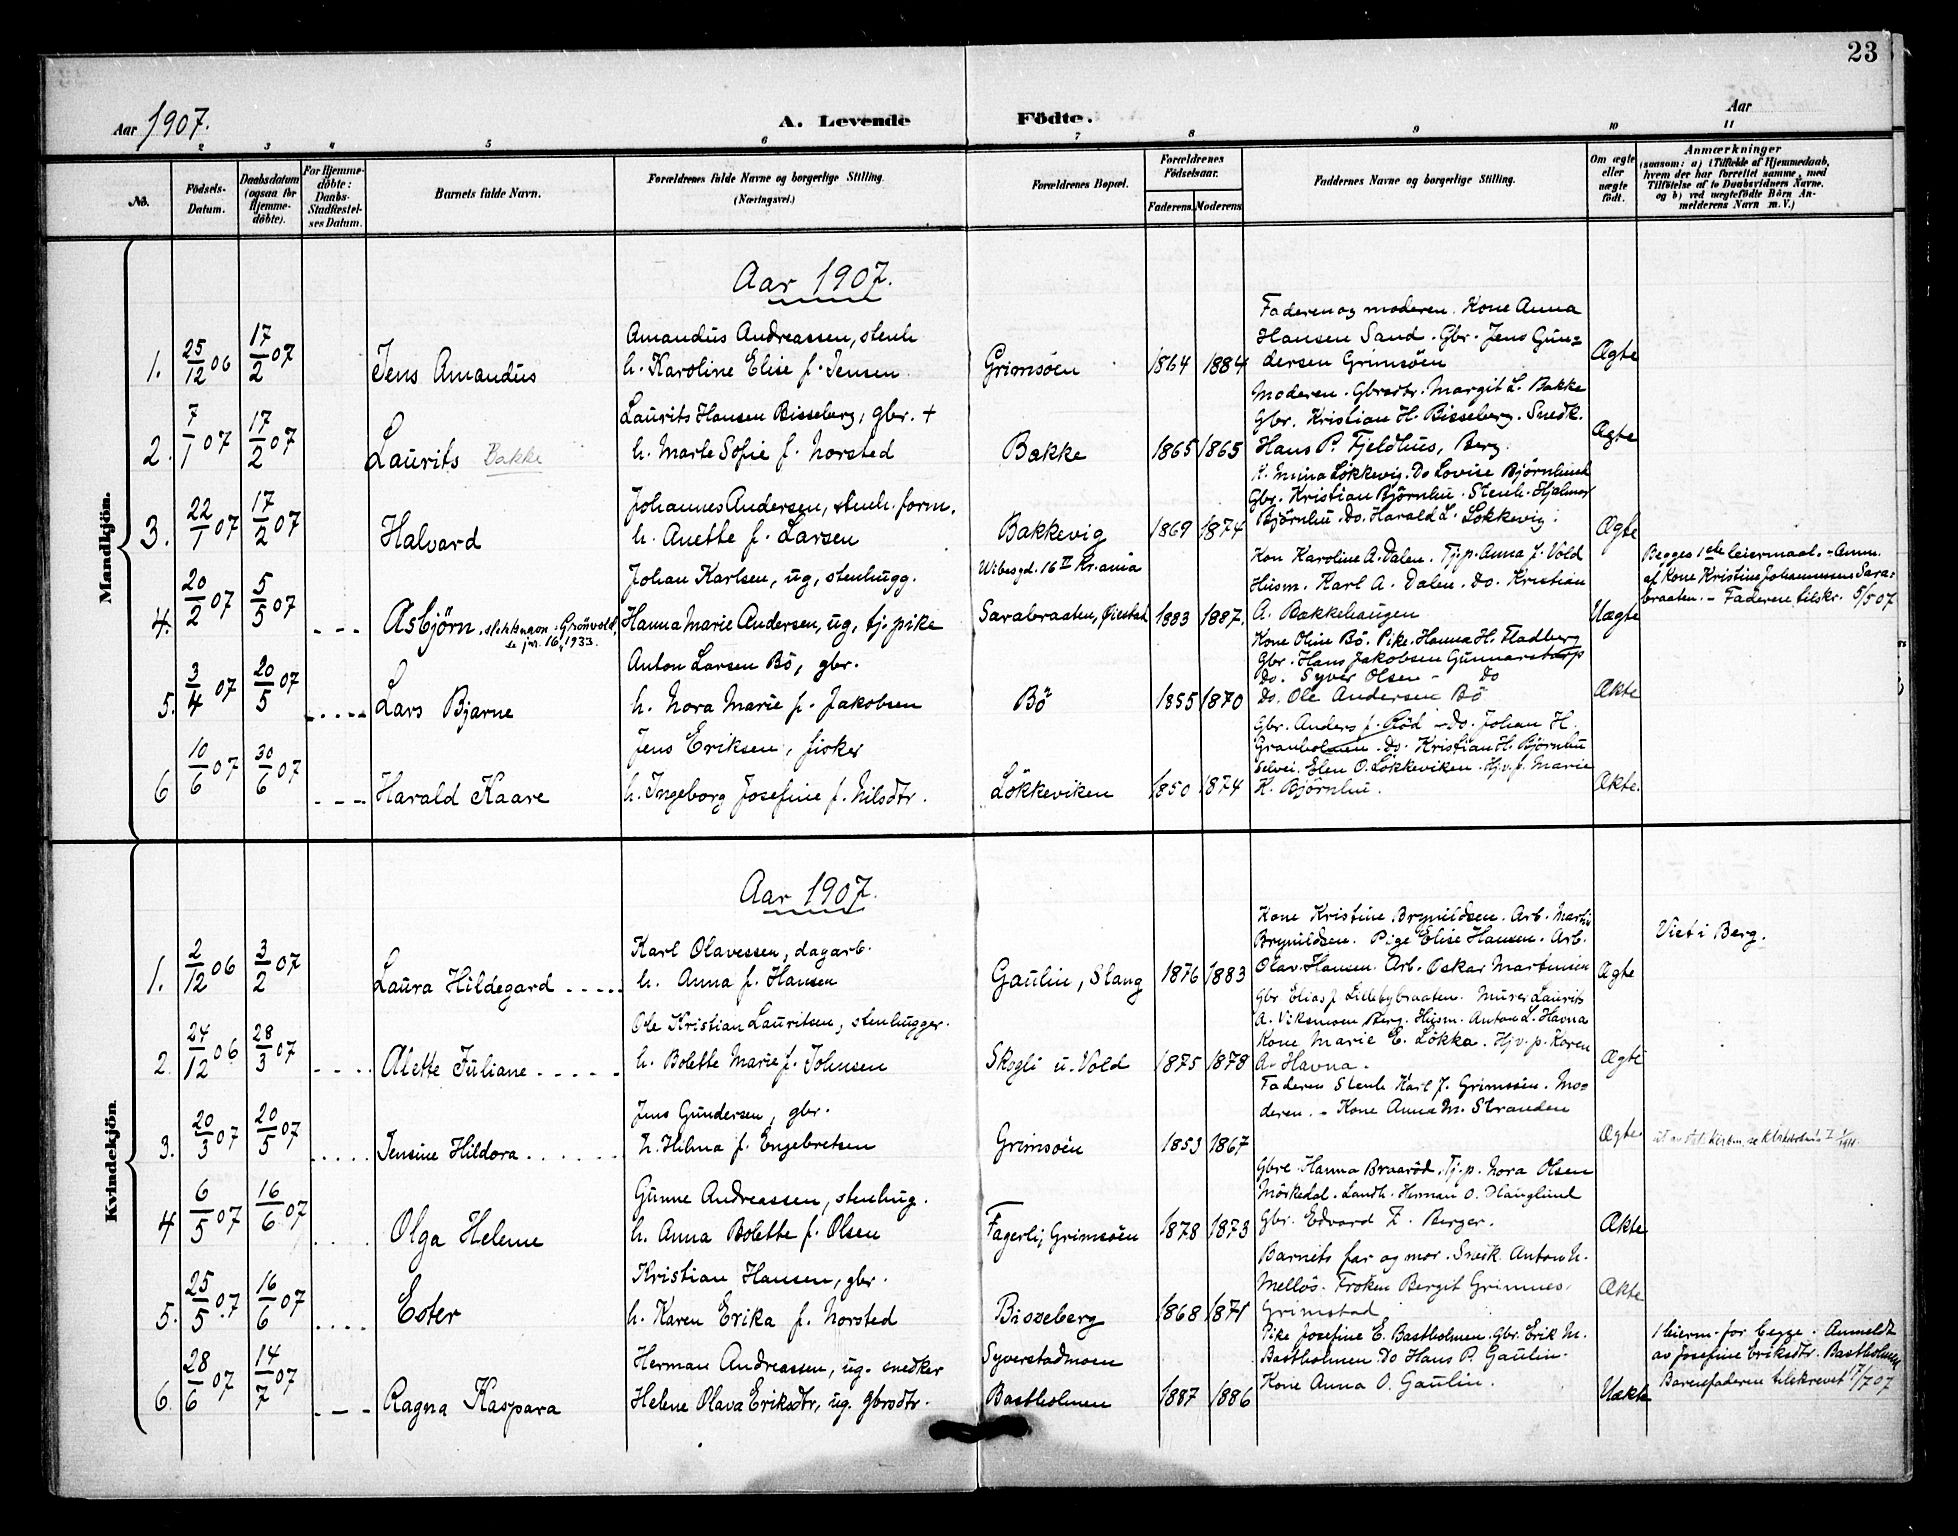 23
Aar 1907.
A. Levende Födte.
Aar
2 3 4 5 6 7 8 9 10 11
No.
Födsels-Datum.
Daabsdatum (ogsaa for Hjemme-döbte).
For Hjemme-döbte: Daabs-Stadfæstel-ses Datum.
Barnets fulde Navn.
Forældrenes fulde Navne og borgerlige Stilling.
(Næringsvei.)
Forældrenes Bopæl.
Forældrenes Födselsaar.
Faderens. Moderens
Faddernes Navne og borgerlige Stilling.
Om ægte eller uægte født.
Anmærkninger
(saasom: a) i Tilfælde af Hjemmedaab,
hvem der har forrettet samme, med
Tilföielse af to Daabsvidners Navne,
og b) ved uægtefödte Börn An-
melderens Navn m. V.)
Mandkjön.
Aar 1907.
1. 25/12 06 17/2 07
Jens Amandus
Amandus Andreassen, stenh
h. Karoline Elise f. Jensen
Grimsöen
1864 1884
Faderen og moderen. Kone Anna
Hansen Sand. Gbr. Jens Gun=
dersen Grimsöen
Ægte
2. 7/1 07 17/2 07
Laurits Bakke
Laurits Hansen Bisseberg, gbr. +
h. Marte Sofie f. Norsted
Bakke
1865 1865
Moderen. Gbrdtr. Margit L. Bakke
Gbr. Kristian H. Bisseberg. Snedk.
Hans P. Fjeldhus, Berg.
Ægte
3. 22/1 07 17/2 07
Halvard
Johannes Andersen, stenh. form.
h. Anette f. Larsen
Bakkevig
1869 1874
K. Mina Lökkevig. Do Lovise Björnhu
Gbr. Kristian Björnhu. Stenh. Hjalmar
Björnhu. Do. Harald L. Lökkevig.
Ægte
4. 20/2 07 5/5 07
Asbjörn, slektsnavn: Grönvold,
se jnr. 16, 1933.
Johan Karlsen, ug, stenhugg.
Hanna Marie Andersen, ug, tj. pike
Wibesgd. 16 II Kr.ania
Sarabraaten,
1883 1887.
Kon Karoline A. Dalen. Tj.p. Anna J. Vold
Husm. Karl A. Dalen. Do. Kristian
A. Bakkehaugen
Uægte
Begges 1ste leiermaal. - Anm.
af Kone Kristine Johannessen Sara=
braaten. - Faderen tilskr. 5/5 07
5. 3/4 07 20/5 07
Lars Bjarne
Anton Larsen Bö, gbr.
h. Nora Marie f. Jakobsen
Bö
1855 1870
Kone Oline Bö. Pike. Hanna H. Fladberg
Gbr. Hans Jakobsen Gunnarstorp
Do. Syver Olsen - Do
Do. Ole Andersen Bö
Ækte
6 10/6 07 30/6 07
Harald Kaare
Jens Eriksen, fisker
h. Ingeborg Josefine f. Nilsdtr.
Lökkeviken
1850 1874
Gbr. Anders J. Röd - Do. Johan H.
Granholmen. Do. Kristian H. Björnhu
Selvei. Elen O. Lökkeviken. Hj.v.p. Marie
K. Björnhu.
Ækte.
Kvindekjön
Aar 1907.
1. 2/12 06 3/2 07
Laura Hildegard
Karl Olavessen, dagarb.
h. Anna f. Hansen
Gaulin, Stang
1876 1883
Kone Kristine Brynildsen. Arb. Martin
Brynildsen. Pige Elise Hansen. Arb.
Olav Hansen. Arb. Oskar Martinsen
Ægte
Viet i Berg.
2. 24/12 06 28/3 07
Alette Juliane
Ole Kristian Lauritsen, stenhugger.
h. Bolette Marie f. Johnsen
Skogli u. Vold
1875 1878
Gbr Elias J. Lillebybraaten. Murer Laurits
A. Viksmoen Berg. Husm. Anton L. Havna
Kone Marie E. Lökka. Hj.v.p. Karen
A. Havna.
Ægte
3. 20/3 07 20/5 07
Jensine Hildora
Jens Gundersen, gbr.
h. Hilma f. Engebretsen
Grimsöen
1853 1867
Faderen Stenh Karl J. Grimsöen. Mo=
deren. - Kone Anna M. Stranden
Ægte
4 6/5 07 16/6 07
Olga Helene
Gunne Andreassen, stenhug.
h. Anna Bolette f. Olsen
Fagerli, Grimsöen
1878 1873
Gbre Hanna Braaröd. Tj.p. Nora Olsen
Mörkedal. Landh. Herman O. Hauglund
Gbr. Edvard Z. Berger.
Ækte
5. 25/5 07 16/6 07
Ester
Kristian Hansen, gbr.
h. Karen Erika f. Norsted
Bisseberg
1868 1871
Barnets far og mor. Snek. Anton N.
Mellös. Fröken Bergit Grimnes,
Grimstad
Ækte
6. 28/6 07 14/7 07
Ragna Kaspara
Herman Andreassen, ug. snedker
Helene Olava Eriksdtr, ug. gbrdtr.
Syverstadmoen
Bastholmen
1887 1886
Pike Josefine E. Bastholmen. Gbr. Erik M.
Bastholmen Do Hans P. Gaulin.
Kone Anna O. Gaulin.
Uækte
1 leierm. for begge. Anmeldt
av Josefine Eriksdtr. Bastholmen
Barnefaderen tilskrevet 17/7 07